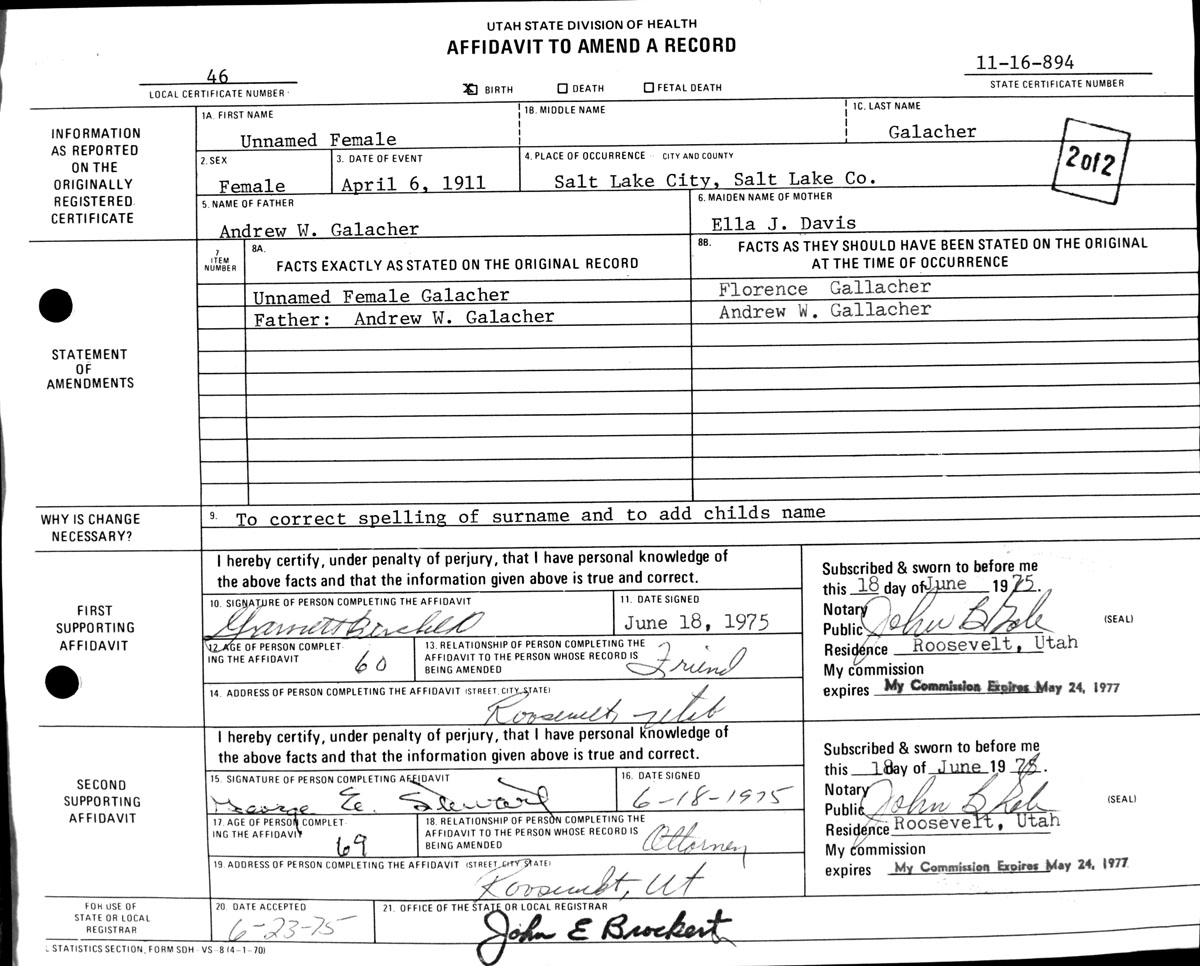 UTAH STATE DIVISION OF HEALTH
AFFIDAVIT TO AMEND A RECORD
46
LOCAL CERTIFICATE NUMBER
X BIRTH DEATH FETAL DEATH
11-16-894
STATE CERTIFICATE NUMBER
INFORMATION
AS REPORTED
ON THE
ORIGINALLY
REGISTERED
CERTIFICATE
1A. FIRST NAME
Unnamed Female
1B. MIDDLE NAME
1C. LAST NAME
Galacher
2 of 2
2. SEX
Female
3. DATE OF EVENT
April 6, 1911
4. PLACE OF OCCURRENCE CITY AND COUNTY
Salt Lake City, Salt Lake Co.
5. NAME OF FATHER
Andrew W. Galacher
6. MAIDEN NAME OF MOTHER
Ella J. Davis
STATEMENT
OF
AMENDMENTS
7
ITEM
NUMBER
8A.
FACTS EXACTLY AS STATED ON THE ORIGINAL RECORD
8B. FACTS AS THEY SHOULD HAVE BEEN STATED ON THE ORIGINAL
AT THE TIME OF OCCURRENCE
Unnamed Female Galacher
Florence Gallacher
Father: Andrew W. Galacher
Andrew W. Gallacher
WHY IS CHANGE
NECESSARY?
9. To correct spelling of surname and to add childs name
FIRST
SUPPORTING
AFFIDAVIT
I hereby certify, under penalty of perjury, that I have personal knowledge of
the above facts and that the information given above is true and correct.
10. SIGNATURE OF PERSON COMPLETING THE AFFIDAVIT
11. DATE SIGNED
June 18, 1975
12 AGE OF PERSON COMPLET-
ING THE AFFIDAVIT
60
13. RELATIONSHIP OF PERSON COMPLETING THE
AFFIDAVIT TO THE PERSON WHOSE RECORD IS
BEING AMENDED
Friend
14. ADDRESS OF PERSON COMPLETING THE AFFIDAVIT (STREET, CITY, STATE)
Roosevelt, Utah
Subscribed & sworn to before me
this 18 day of June 1975.
Notary
Public John B
Residence Roosevelt, Utah
My commission
expires My Commission Expires May 24, 1977
(SEAL)
SECOND
SUPPORTING
AFFIDAVIT
I hereby certify, under penalty of perjury, that I have personal knowledge of
the above facts and that the information given above is true and correct.
15. SIGNATURE OF PERSON COMPLETING AFFIDAVIT
George E. Stewart
16. DATE SIGNED
6-18-1975
17. AGE OF PERSON COMPLET-
ING THE AFFIDAVIT
69
18. RELATIONSHIP OF PERSON COMPLETING THE
AFFIDAVIT TO THE PERSON WHOSE RECORD IS
BEING AMENDED
Attorney
19. ADDRESS OF PERSON COMPLETING THE AFFIDAVIT (STREET, CITY, STATE)
Roosevelt, Ut
Subscribed & sworn to before me
this 18 day of June 1975.
Notary
Public John B
Residence Roosevelt, Utah
My commission
expires My Commission Expires May 24, 1977
(SEAL)
FOR USE OF
STATE OR LOCAL
REGISTRAR
20. DATE ACCEPTED
6-23-75
21. OFFICE OF THE STATE OR LOCAL REGISTRAR
John E Brockert
STATISTICS SECTION, FORM SDH-VS-8 (4-1-70)